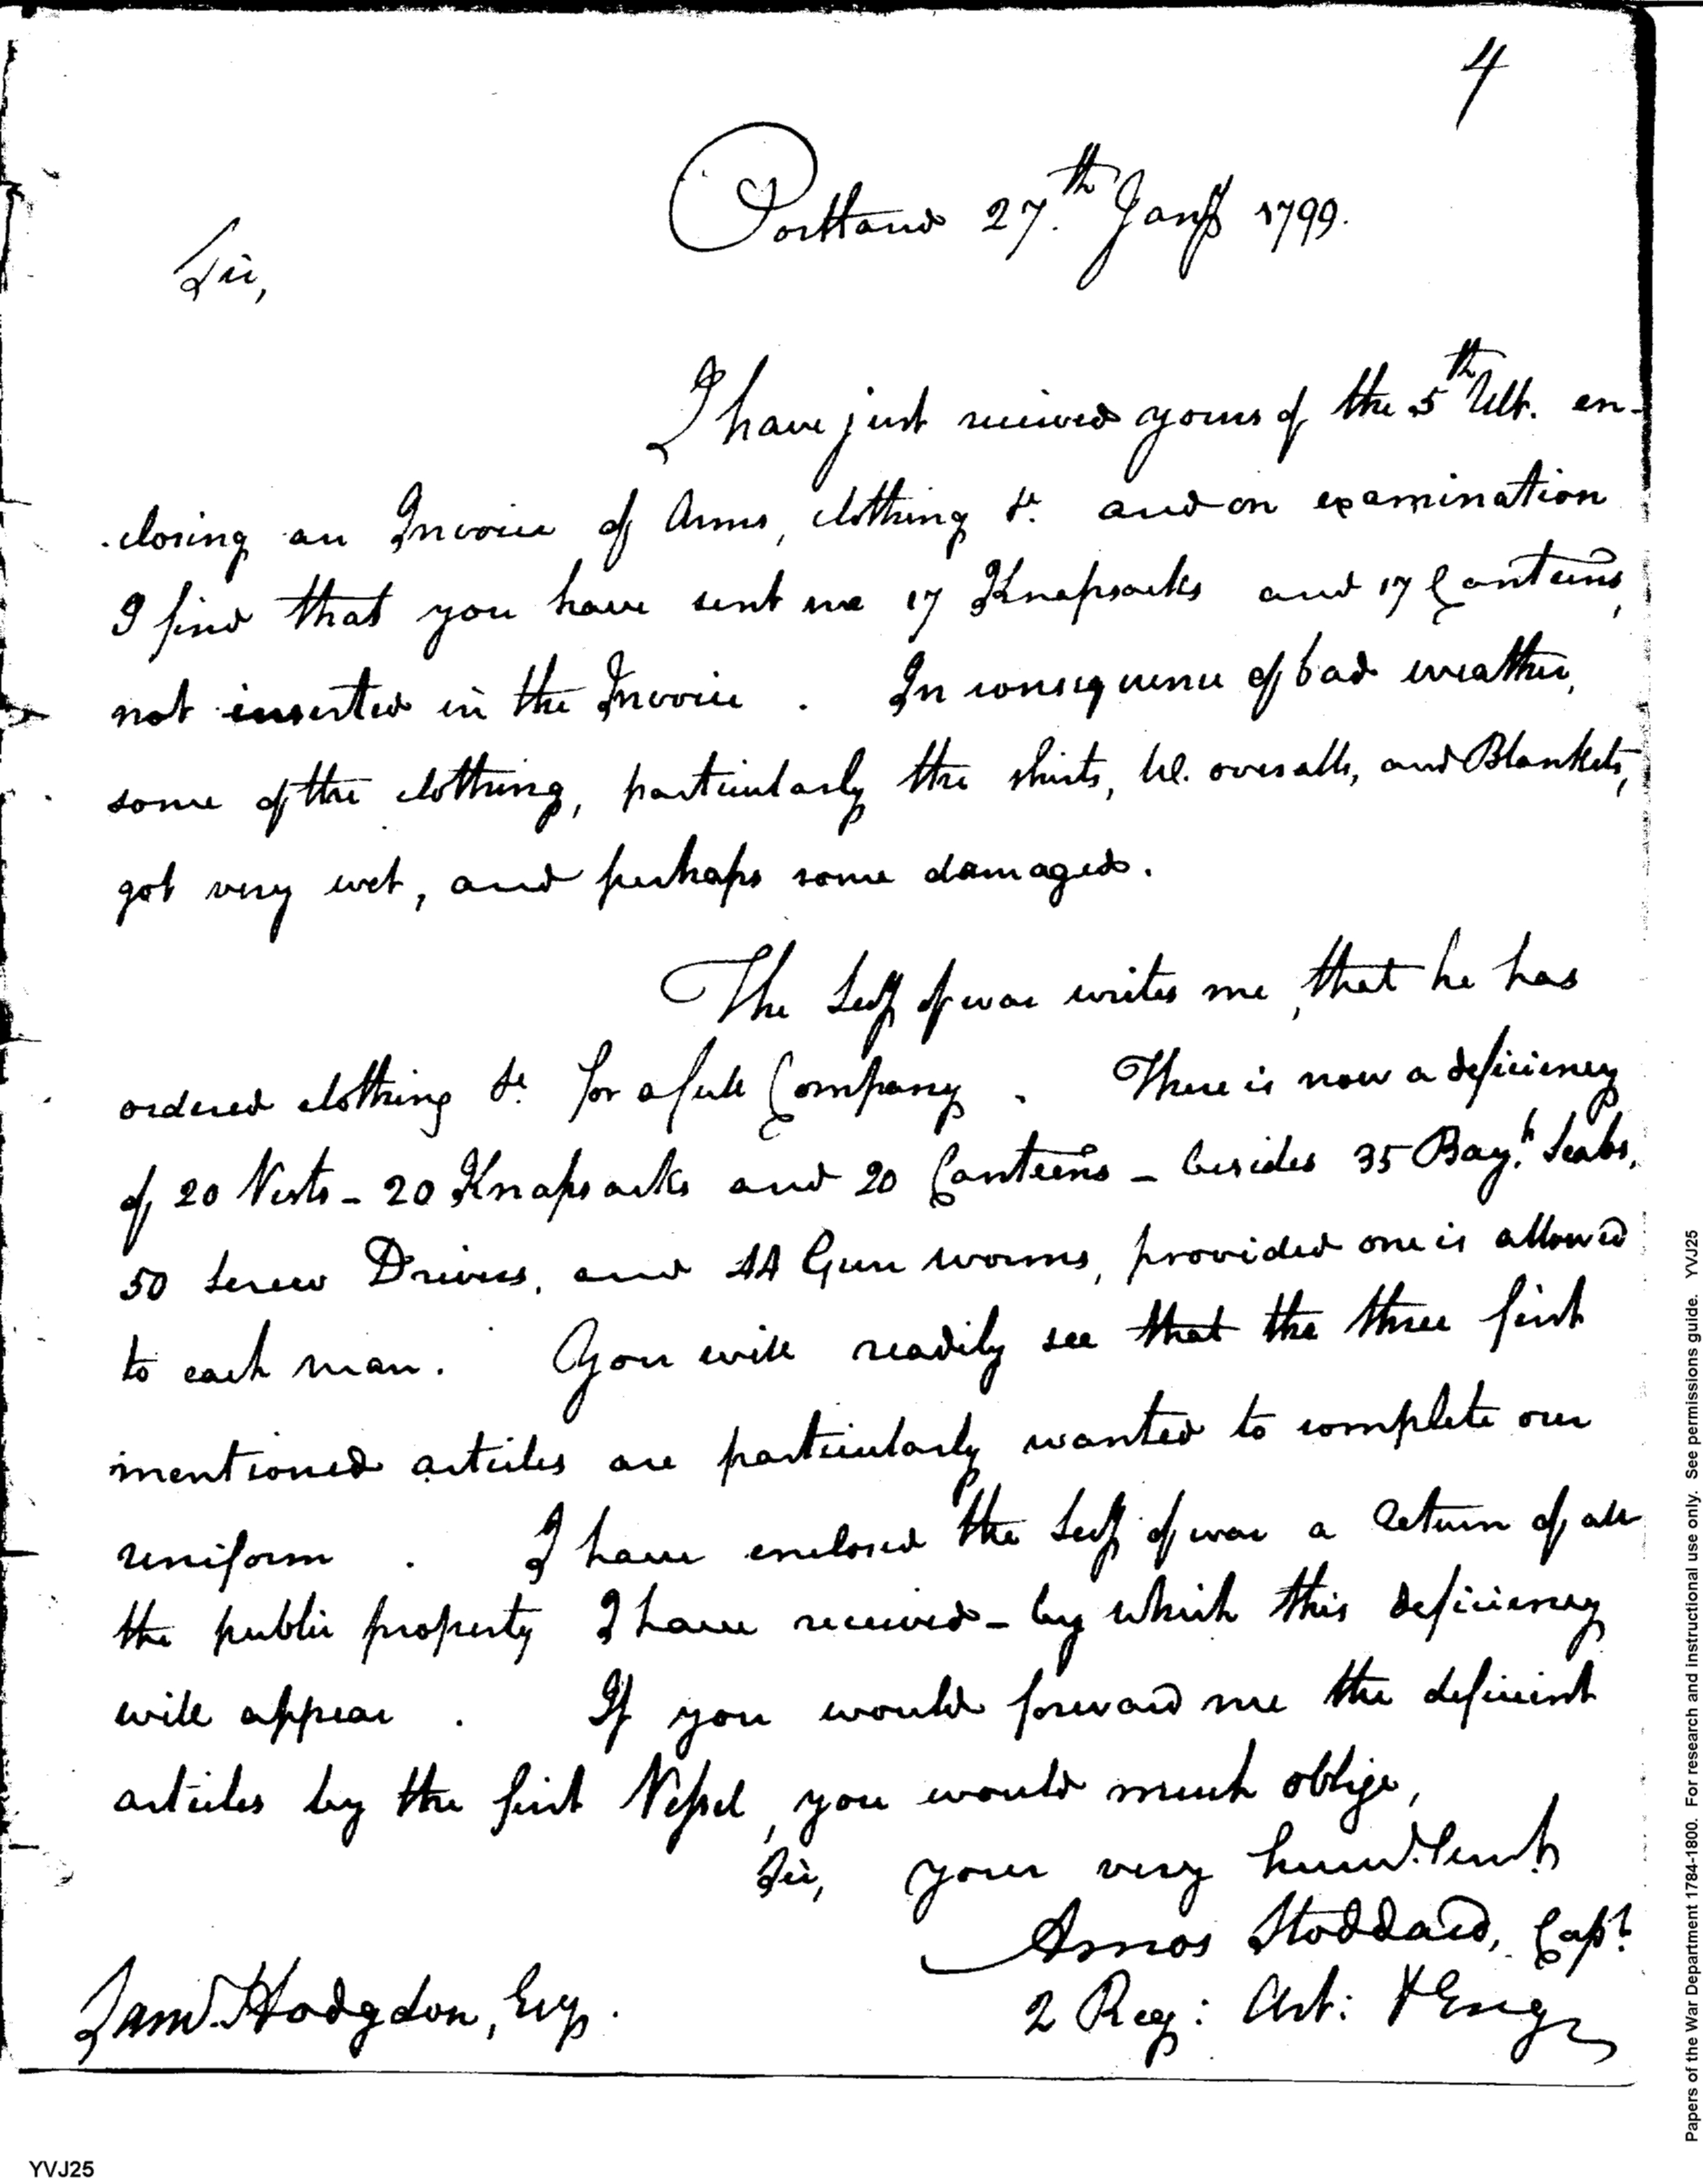 4
Portland 27.th Jany 1799.
Sir,
I have just received yours of the 5th Ult. en-
closing an Invoice of Arms, clothing &c. and on examination
I find that you have sent me 17 Knapsacks and 17 Canteens,
not inserted in the Invoice. In consequence of bad weather,
some of the clothing, particularly the shirts, overalls, and Blankets,
got very wet, and perhaps some damaged.
The Secy of war writes me, that he has
ordered clothing &c. for a full Company. There is now a deficiency
of 20 Vests - 20 Knapsacks and 20 Canteens - besides 35 Bayt. Scabs,
50 Screw Drivers, and 44 Gun worms, provided one is allowed
to each man. You will readily see that the three first
mentioned articles are particularly wanted to complete our
uniform. I have enclosed the Secy of war a Return of all
the public property I have received - by which this deficiency
will appear. If you would forward me the deficient
articles by the first Vessel, you would much oblige,
Sir, your very huml. Servt.
Amos Stoddard, Capt.
2 Reg: Art: & Eng
Saml. Hodgdon, Esq.
YVJ25
Papers of the War Department 1784-1800. For research and instructional use only. See permissions guide. YVJ25